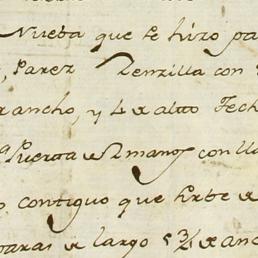 Nueba que se hizo pa
, Parez Senzilla con
rancho, y 4 de alto Tech
Puerta de 2 manos con ll
o contiguo que sirbe de
baras de largo 5 3/4 de anc